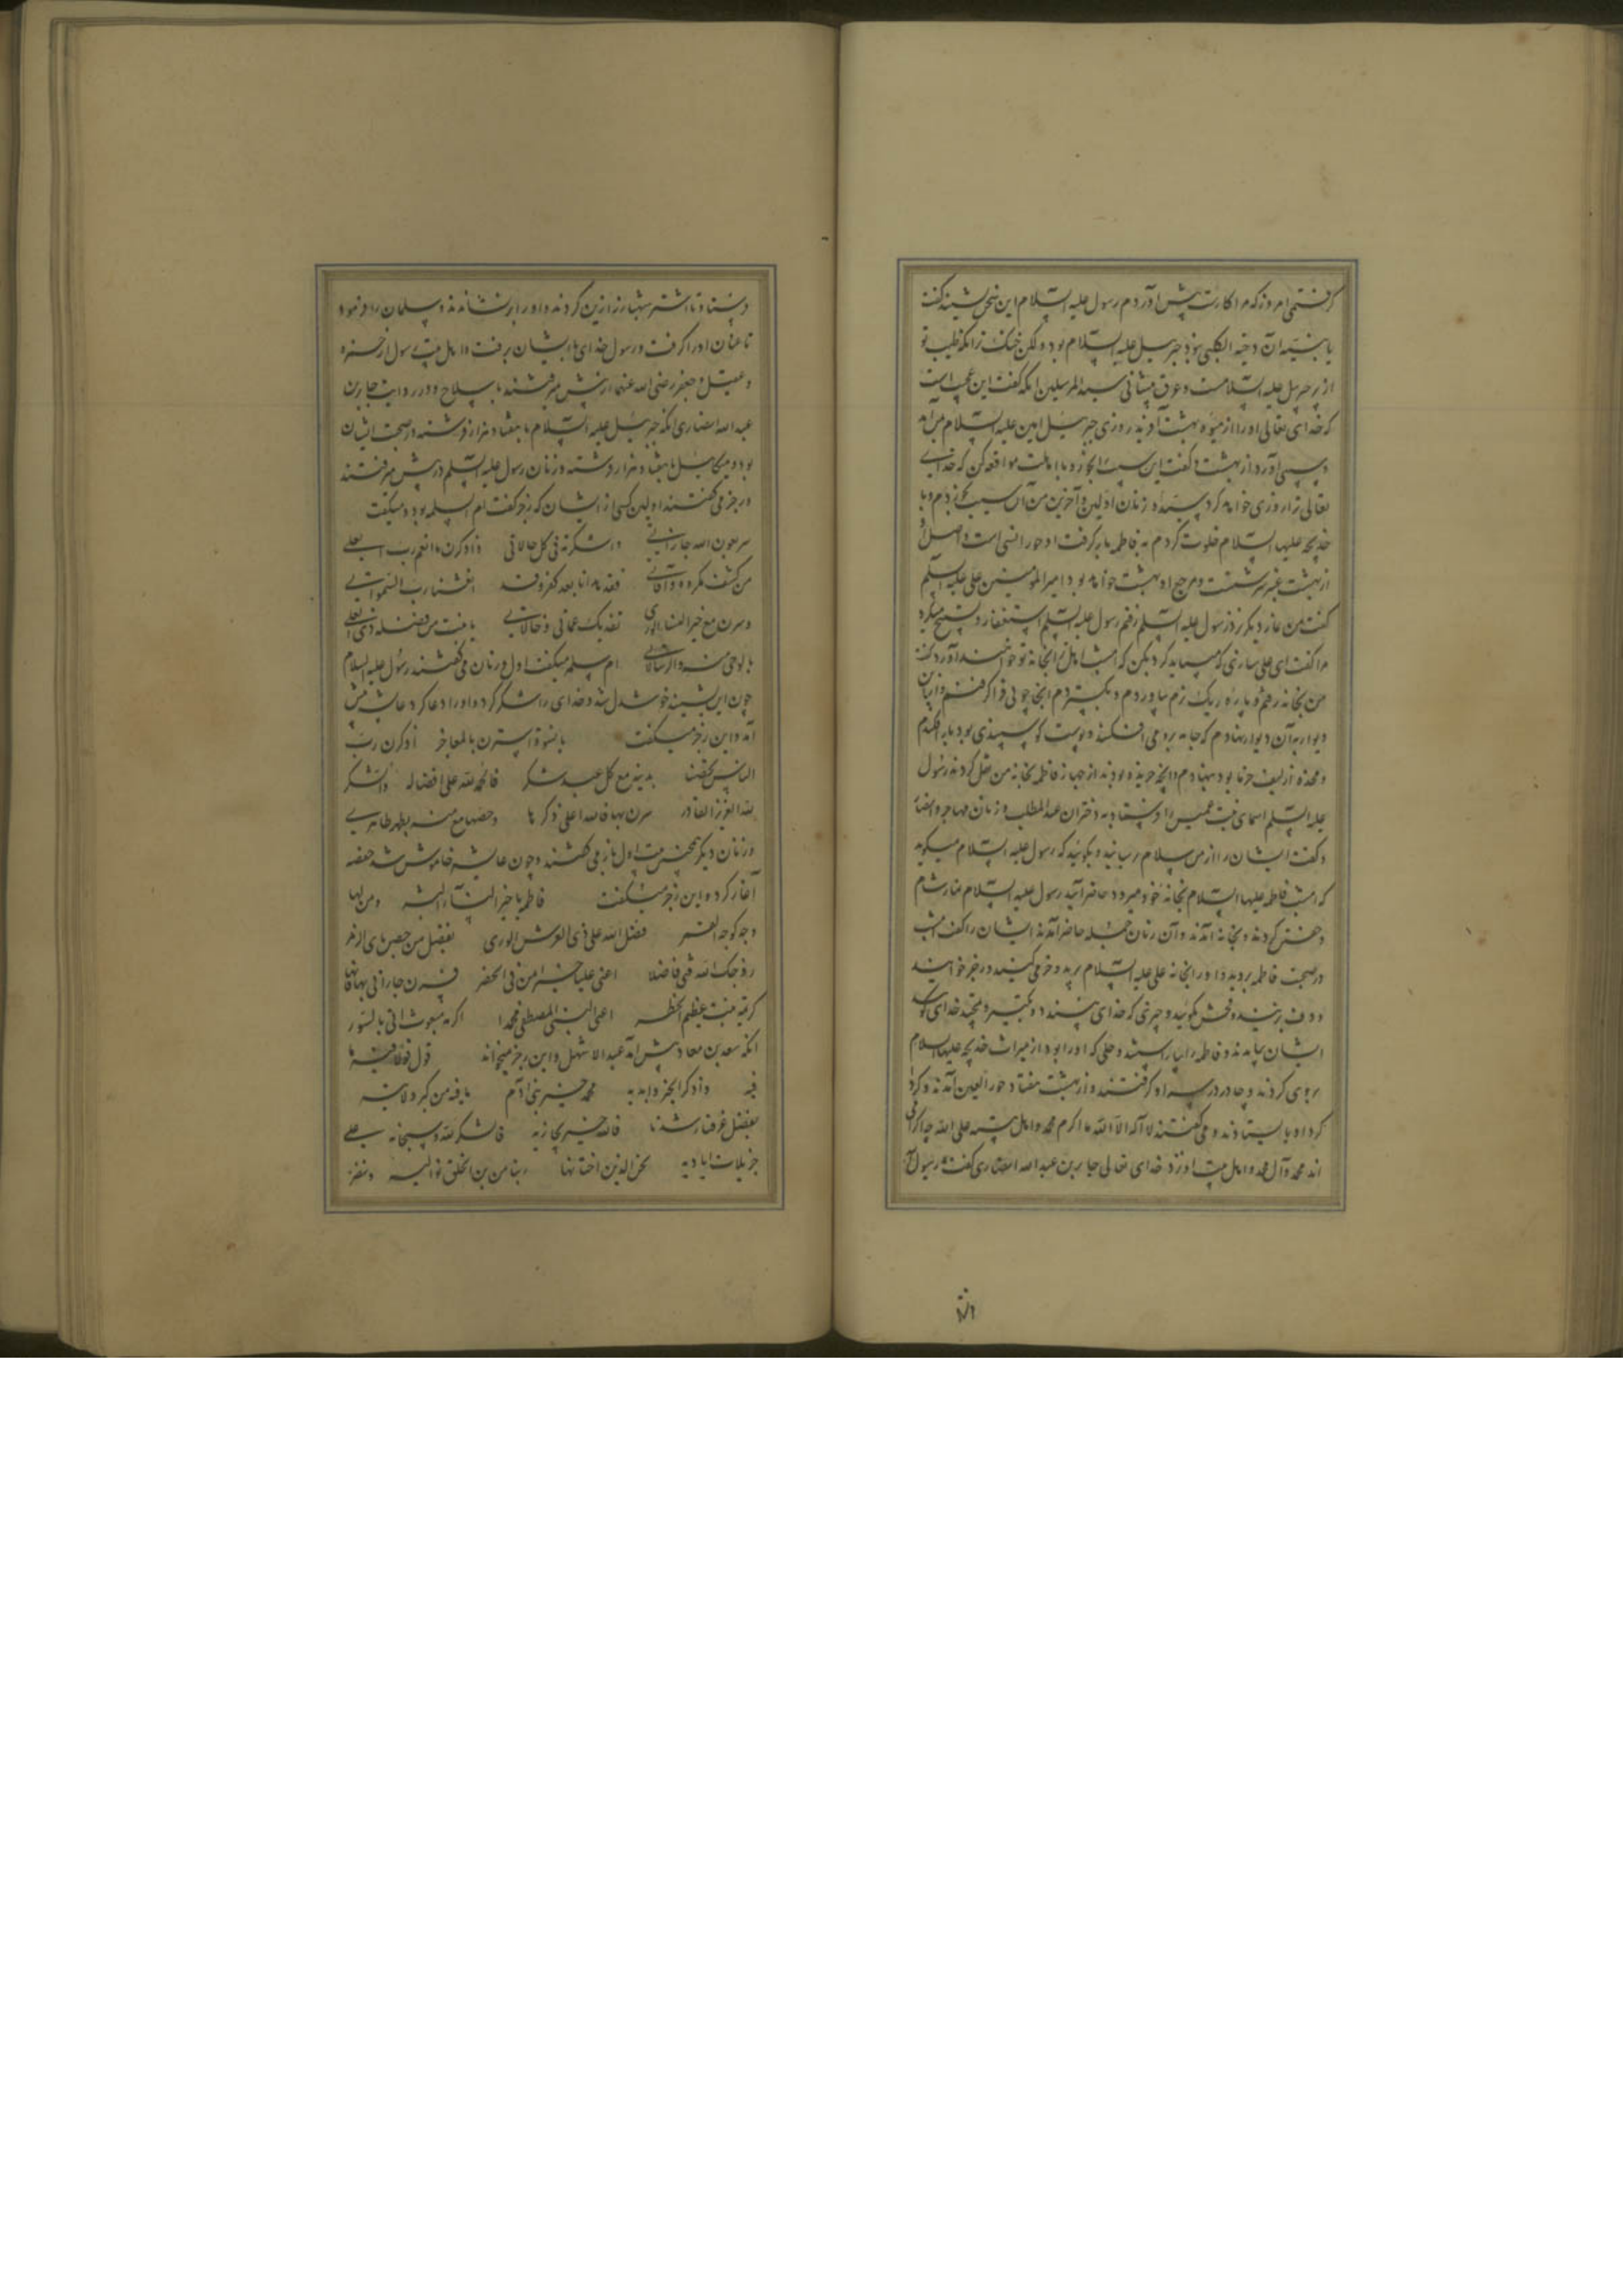 گرفتمی امروز که مرا کارت پیش آوردم رسول علیه السلام این سخن بشنید گفت
یا بنیه آن دحیه الکلبی نبود جبرئیل علیه السلام بود ولکن خنک ترا که طیب تو
از پر جبرئیل علیه السلامست و عرق پیشانی سید المرسلین انکه گفت این عجب است
که خدای تعالی او را از میوه بهشت آفرید روزی جبرئیل امین علیه السلام بمن آمد
و سیبی آورد از بهشت و گفت این سیب را بخور و با اهلت مواقعه کن که خدای
تعالی ترا روزی خواهد کرد سیده زنان اولین و آخرین من آن سیب بخوردم و با
خدیجه علیها السلام خلوت کردم به فاطمه بار گرفت او حورا انسی است و اصل او
از بهشت عنبر سرشتست و مرجع او بهشت خواهد بود امیر المومنین علی علیه السلم
گفت من نماز دیگر نزد رسول علیه السلم رفتم رسول علیه السلم استغفار و تسبیح میکرد
مرا گفت ای علی سازی که میباید کرد بکن که امشب اهل ترا بخانه تو خواهند آورد گفت
من بخانه رفتم و پاره ریک نرم بیاوردم و بگستردم انجا چوبی فرا گرفتم و از این
دیوار به آن دیوار نهادم که جامه برو می افکنند و پوست گوسپندی بود باز افکندم
و مخده از لیف خرما بود بنهادم و انچه خریده بودند از جهاز فاطمه بخانه من نقل کردند رسول
علیه السلم اسمای بنت عمیس را فرستاد به دختران عبد المطلب و زنان مهاجر و انصار
و گفت ایشان را از من سلام رسانید و بگوئید که رسول علیه السلام میگوید
که امشب فاطمه علیها السلام بخانه خود میرود حاضر آئید رسول علیه السلام نماز شام
و خفتن کردند و بخانه آمدند و آن زنان جمله حاضر آمدند ایشان را گفت امشب
در صحبت فاطمه بروید و او را بخانه علی علیه السلام برید و خرمی کنید و رجز خوانید
و دف بزنید و فحش مگوئید و چیزی که خدای پسندد و تکبیر و تمجید خدای گوئید
ایشان بیامدند و فاطمه را بیاراستند و حلی که او را بود از میراث خدیجه علیها السلام
بروی کردند و چادر در سر او گرفتند و از بهشت هفتاد حور العین آمدند و گرد
گرد او بایستادند و می گفتند لا اله الا الله ما اکرم محمد و اهل بیته علی الله چه گرامی
اند محمد و آل محمد و اهل بیت او نزد خدای تعالی جابر بن عبد الله انصاری گفت رسول
فرستاد تا اشتر شهبا را زین کردند و او را بر نشاندند و سلمان را فرمود
تا عنان او را گرفت و رسول خدای با ایشان برفت و اهل بیت رسول از حمزه
و عقیل و جعفر رضی الله عنهم از پیش میرفتند با سلاح و در روایت جابر بن
عبد الله انصاری انکه جبرئیل علیه السلام با هفتاد هزار فرشته در صحبت ایشان
بود و میکائیل با هفتاد هزار فرشته و زنان رسول علیه السلم در پیش میرفتند
و رجز می گفتند اولین کسی از ایشان که رجز گفت ام السلمه بود و میگفت
سرن بعون الله جاراتی واشکرنه فی کل حالاتی واذکرن ما انعم رب العلی
من کشف مکروه وآفاتی فقد هدانا بعد کفر وقد انعشنا رب السمواتی
وسرن مع خیر النساء الوری تفدی بعماتی وخالاتی یا بنت من فضله ذو العلی
بالوحی منه والرسالاتی ام سلمه میگفت اول و زنان می گفتند رسول علیه السلام
چون این بشنید خوشدل شد و خدای را شکر کرد و او را دعا کرد عایشه پیش
آمد و این رجز میگفت یا نسوة استترن بالمعاجر اذکرن رب
الناس بدینه مع کل عبد شاکر فالحمد لله علی افضاله والشکر
لله العزیز القادر سرن بها فالله اعلی ذکرها وخصها منه بطهر طاهری
و زنان دیگر همچنین بیت اول باز می گفتند و چون عایشه خاموش شد حفصه
آغاز کرد و این رجز میگفت فاطمة یا خیر النساء البشر ومن لها
وجه کوجه القمر فضلک الله علی ذی الورى بفضل من خص بای الزمر
زوجک الله فتی فاضلا اعنی علیا خیر من فی الحضر فسرن جاراتی بها فانها
کریمة بنت عظیم الخطر اعنی النبی المصطفی محمدا اکرم مبعوث اتی بالسور
انکه سعد بن معاذ پیش آمد عبد الاشهل و این رجز میخواند قول قولا فیه ما
فیه واذکر الخیر وابدیه محمد خیر بنی آدم ما فیه من کبر ولا تیه
بفضل عرفنا رشدنا فالله خیرا یجازیه فاشکر لله وسبحانه علی
جزیلات ایادیه نحن الذین